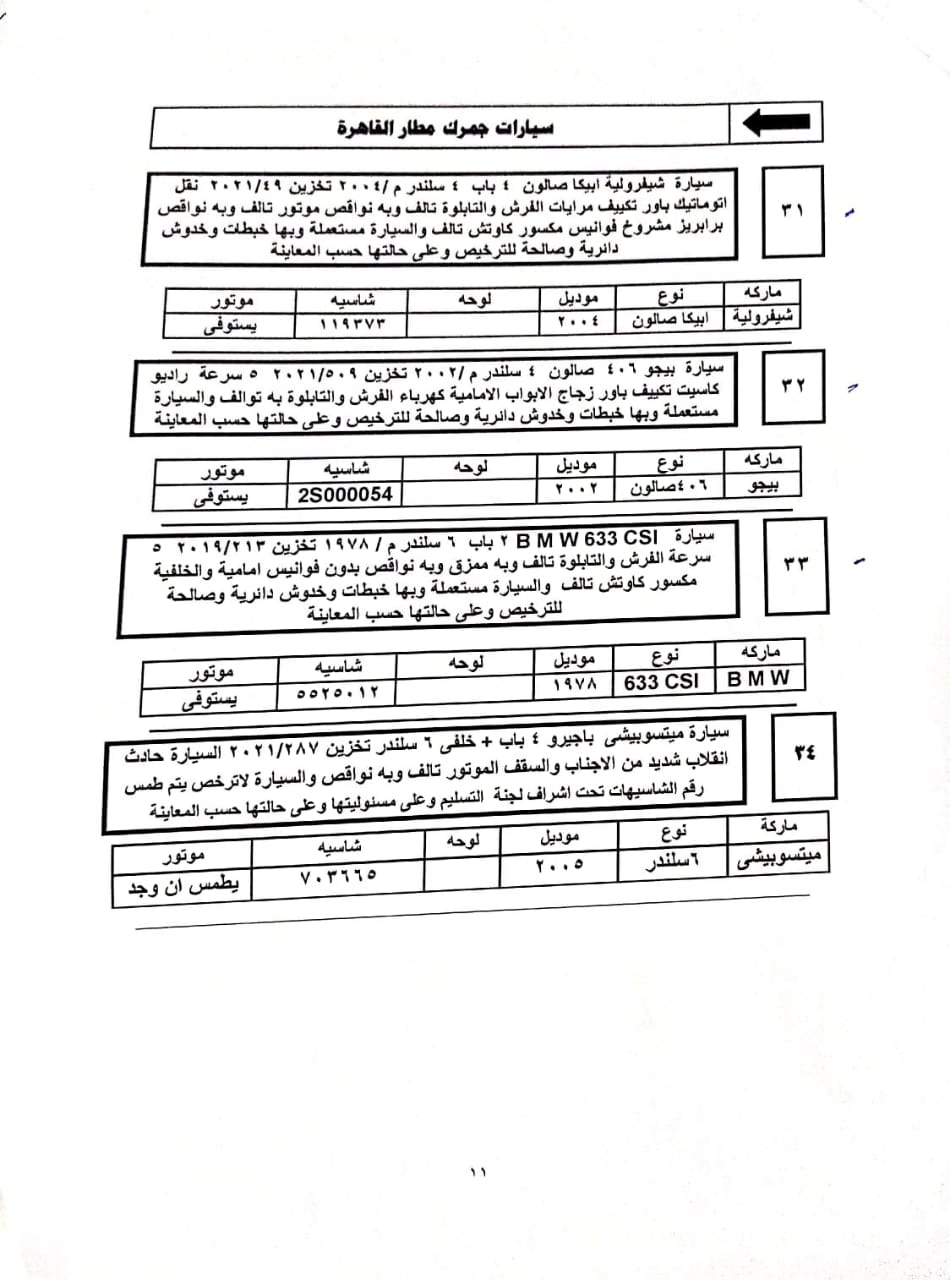 سيارات جمرك مطار القاهرة
٣١
سيارة شيفرولية ابيكا صالون ٤ باب ٤ سلندر م /٢٠٠٤ تخزين ٢٠٢١/٤٩ نقل
اتوماتيك باور تكييف مرايات الفرش والتابلوة تالف وبه نواقص موتور تالف وبه نواقص
برابريز مشروخ فوانيس مكسور كاوتش تالف والسيارة مستعملة وبها خبطات وخدوش
دائرية وصالحة للترخيص وعلى حالتها حسب المعاينة
ماركه نوع موديل لوحه شاسيه موتور
شيفرولية ابيكا صالون ٢٠٠٤ ١١٩٣٧٣ يستوفى
٣٢
سيارة بيجو ٤٠٦ صالون ٤ سلندر م /٢٠٠٢ تخزين ٢٠٢١/٥٠٩ ٥ سرعة راديو
كاسيت تكييف باور زجاج الابواب الامامية كهرباء الفرش والتابلوة به توالف والسيارة
مستعملة وبها خبطات وخدوش دائرية وصالحة للترخيص وعلى حالتها حسب المعاينة
ماركه نوع موديل لوحه شاسيه موتور
بيجو ٤٠٦صالون ٢٠٠٢ 2S000054 يستوفى
٣٣
سيارة B M W 633 CSI ٢ باب ٦ سلندر م / ١٩٧٨ تخزين ٢٠١٩/٢١٣ ٥
سرعة الفرش والتابلوة تالف وبه ممزق وبه نواقص بدون فوانيس امامية والخلفية
مكسور كاوتش تالف والسيارة مستعملة وبها خبطات وخدوش دائرية وصالحة
للترخيص وعلى حالتها حسب المعاينة
ماركه نوع موديل لوحه شاسيه موتور
B M W 633 CSI ١٩٧٨ ٥٥٢٥٠١٢ يستوفى
٣٤
سيارة ميتسوبيشى باجيرو ٤ باب + خلفى ٦ سلندر تخزين ٢٠٢١/٢٨٧ السيارة حادث
انقلاب شديد من الاجناب والسقف الموتور تالف وبه نواقص والسيارة لاترخص يتم طمس
رقم الشاسيهات تحت اشراف لجنة التسليم وعلى مسئوليتها وعلى حالتها حسب المعاينة
ماركة نوع موديل لوحه شاسيه موتور
ميتسوبيشى ٦سلندر ٢٠٠٥ ٧٠٣٦٦٥ يطمس ان وجد
١١